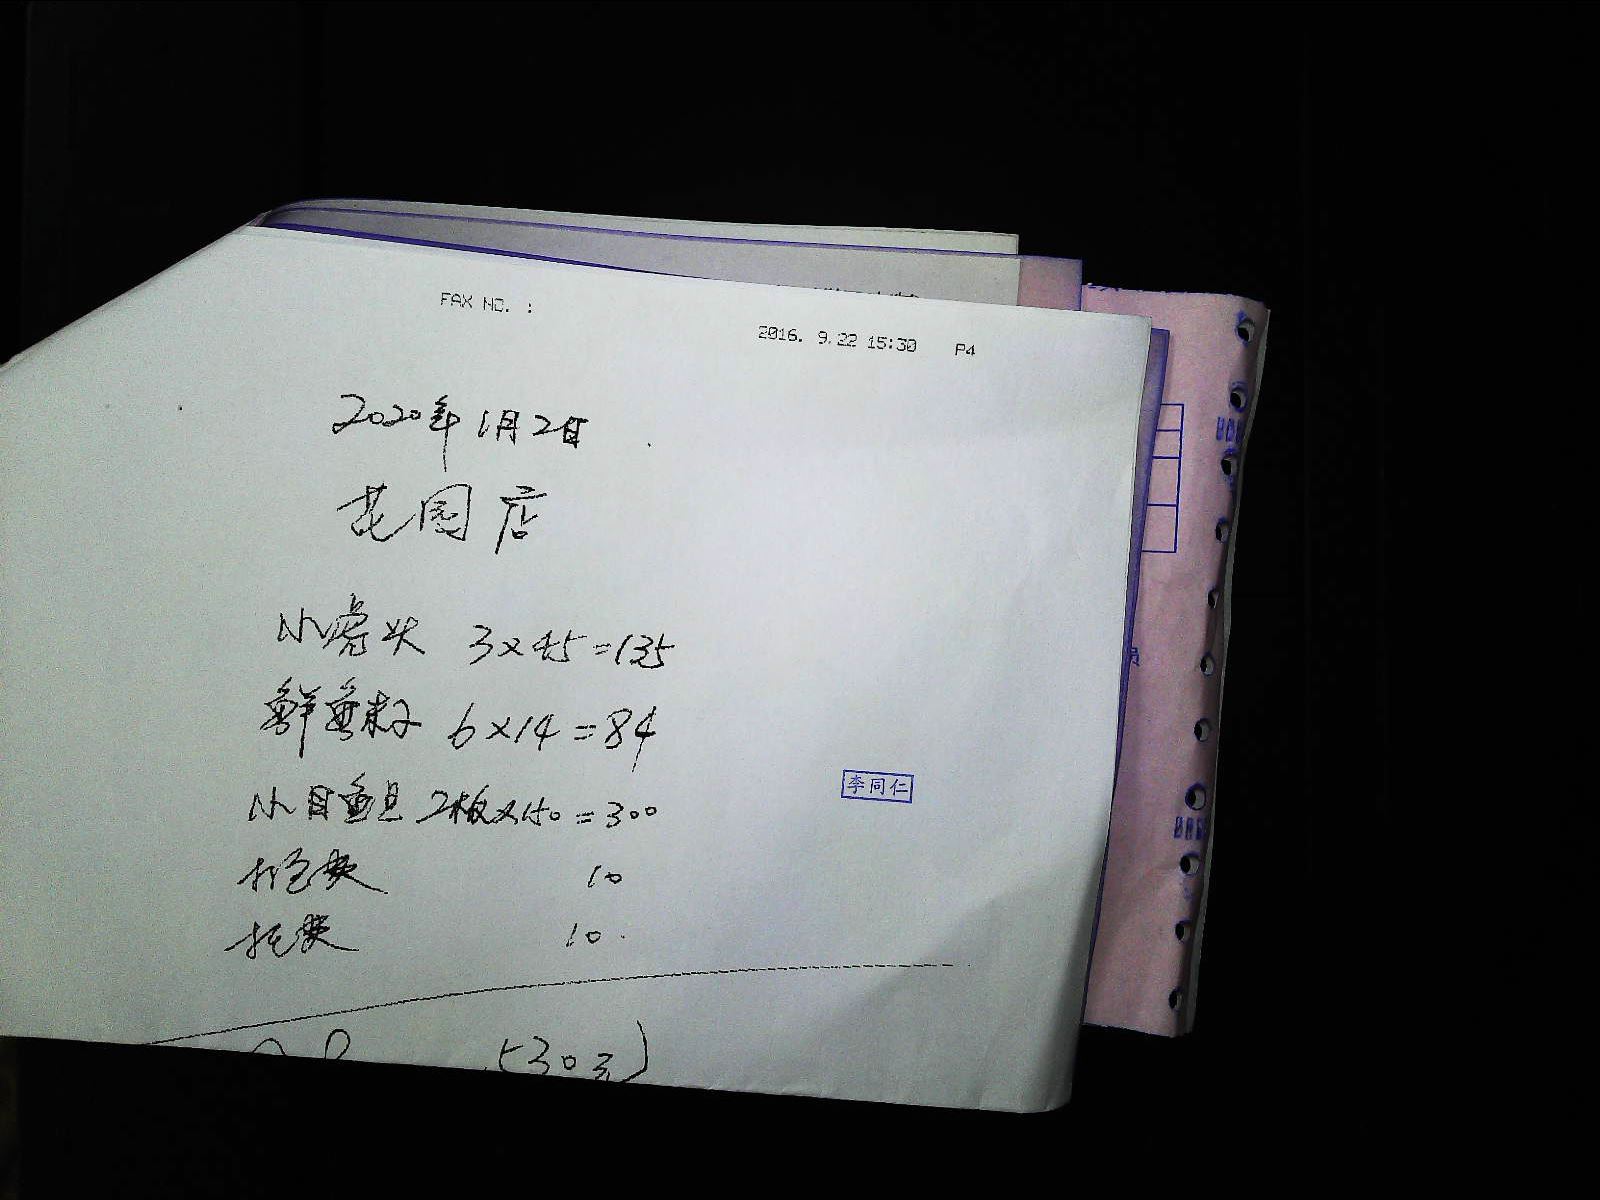 FAX NO. :
2016. 9.22 15:30 P4
2020年1月2日
花园店
小虎头 3×45=135
鲜鱼籽 6×14=84
小目鱼旦 2板×150=300
打包费 10
托费 10
李同仁
(30元)